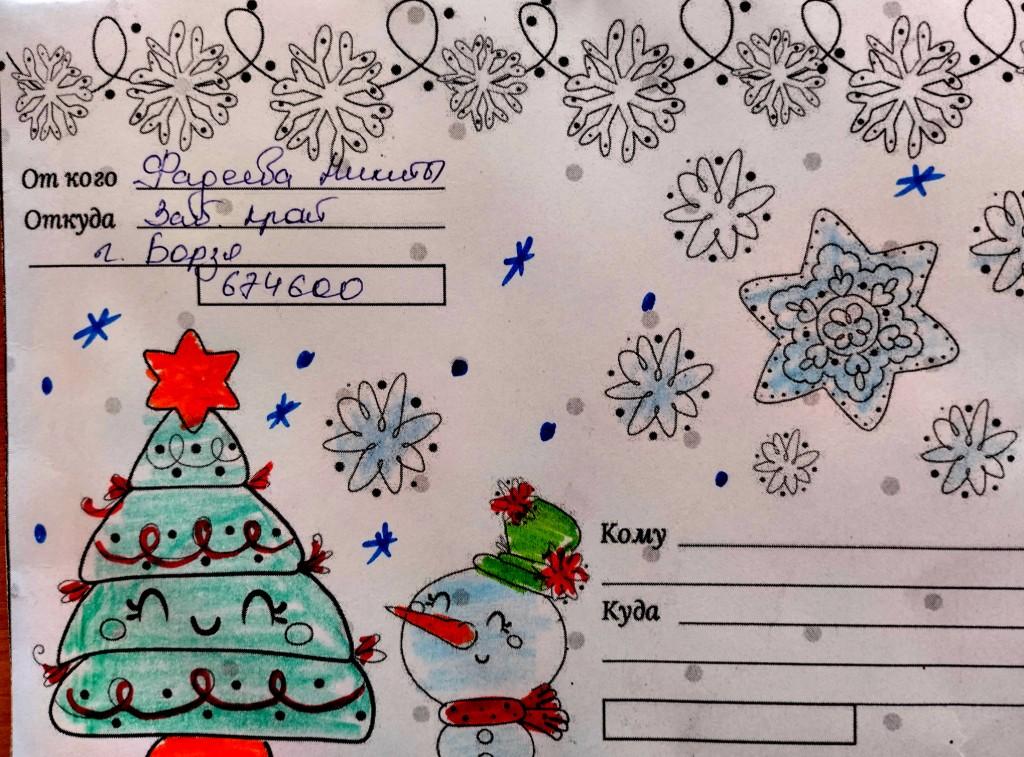 От кого Фадеева Никиты
Откуда Заб. край
г. Борзя
674600
Кому
Куда